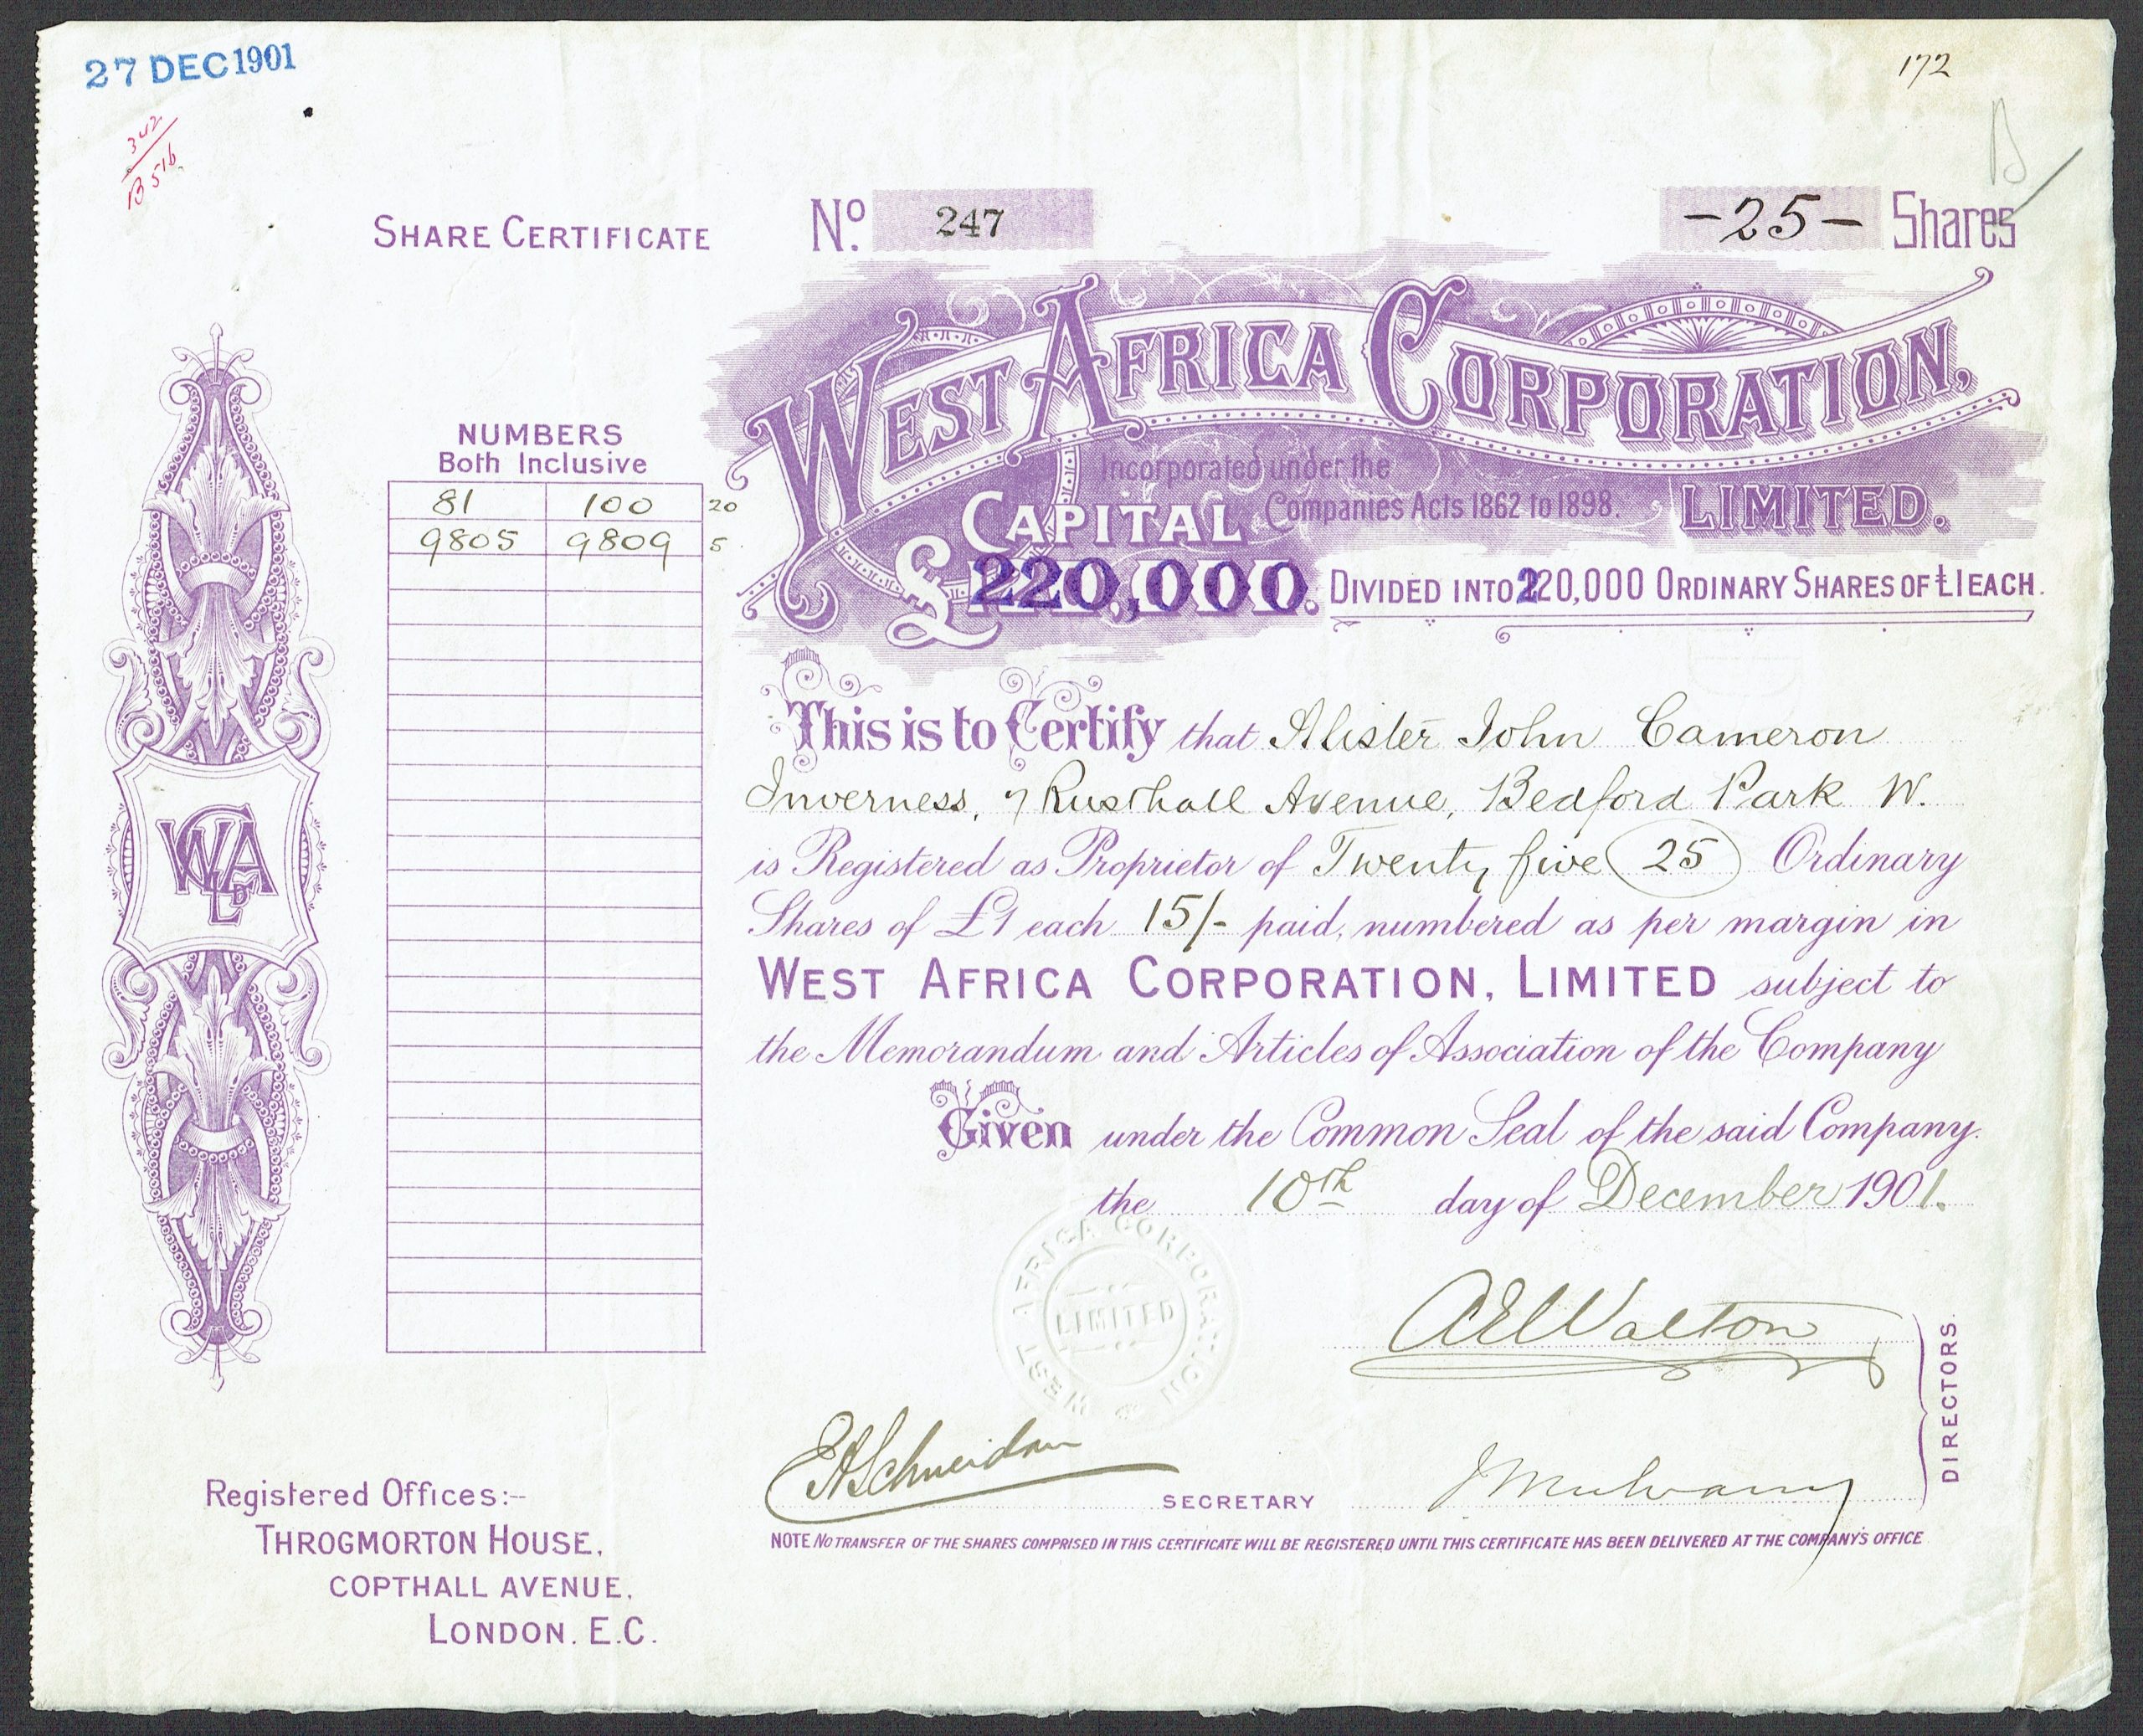 27 DEC 1901
172
342
B 516
B
SHARE CERTIFICATE
No. 247
-25- Shares
WEST AFRICA CORPORATION,
LIMITED.
Incorporated under the
Companies Acts 1862 to 1898.
CAPITAL
£220,000. DIVIDED INTO 220,000 ORDINARY SHARES OF £1 EACH.
NUMBERS
Both Inclusive
81 100 20
9805 9809 5
WCA
LD
This is to Certify that Alister John Cameron
Inverness, 7 Rusthall Avenue, Bedford Park W.
is Registered as Proprietor of Twenty five (25) Ordinary
Shares of £1 each 15/- paid, numbered as per margin in
WEST AFRICA CORPORATION, LIMITED subject to
the Memorandum and Articles of Association of the Company
Given under the Common Seal of the said Company.
the 10th day of December 1901.
WEST AFRICA CORPORATION
LIMITED
AEWalton
DIRECTORS.
SECRETARY
J Mulvany
NOTE NO TRANSFER OF THE SHARES COMPRISED IN THIS CERTIFICATE WILL BE REGISTERED UNTIL THIS CERTIFICATE HAS BEEN DELIVERED AT THE COMPANY'S OFFICE
Registered Offices:-
THROGMORTON HOUSE,
COPTHALL AVENUE,
LONDON. E.C.